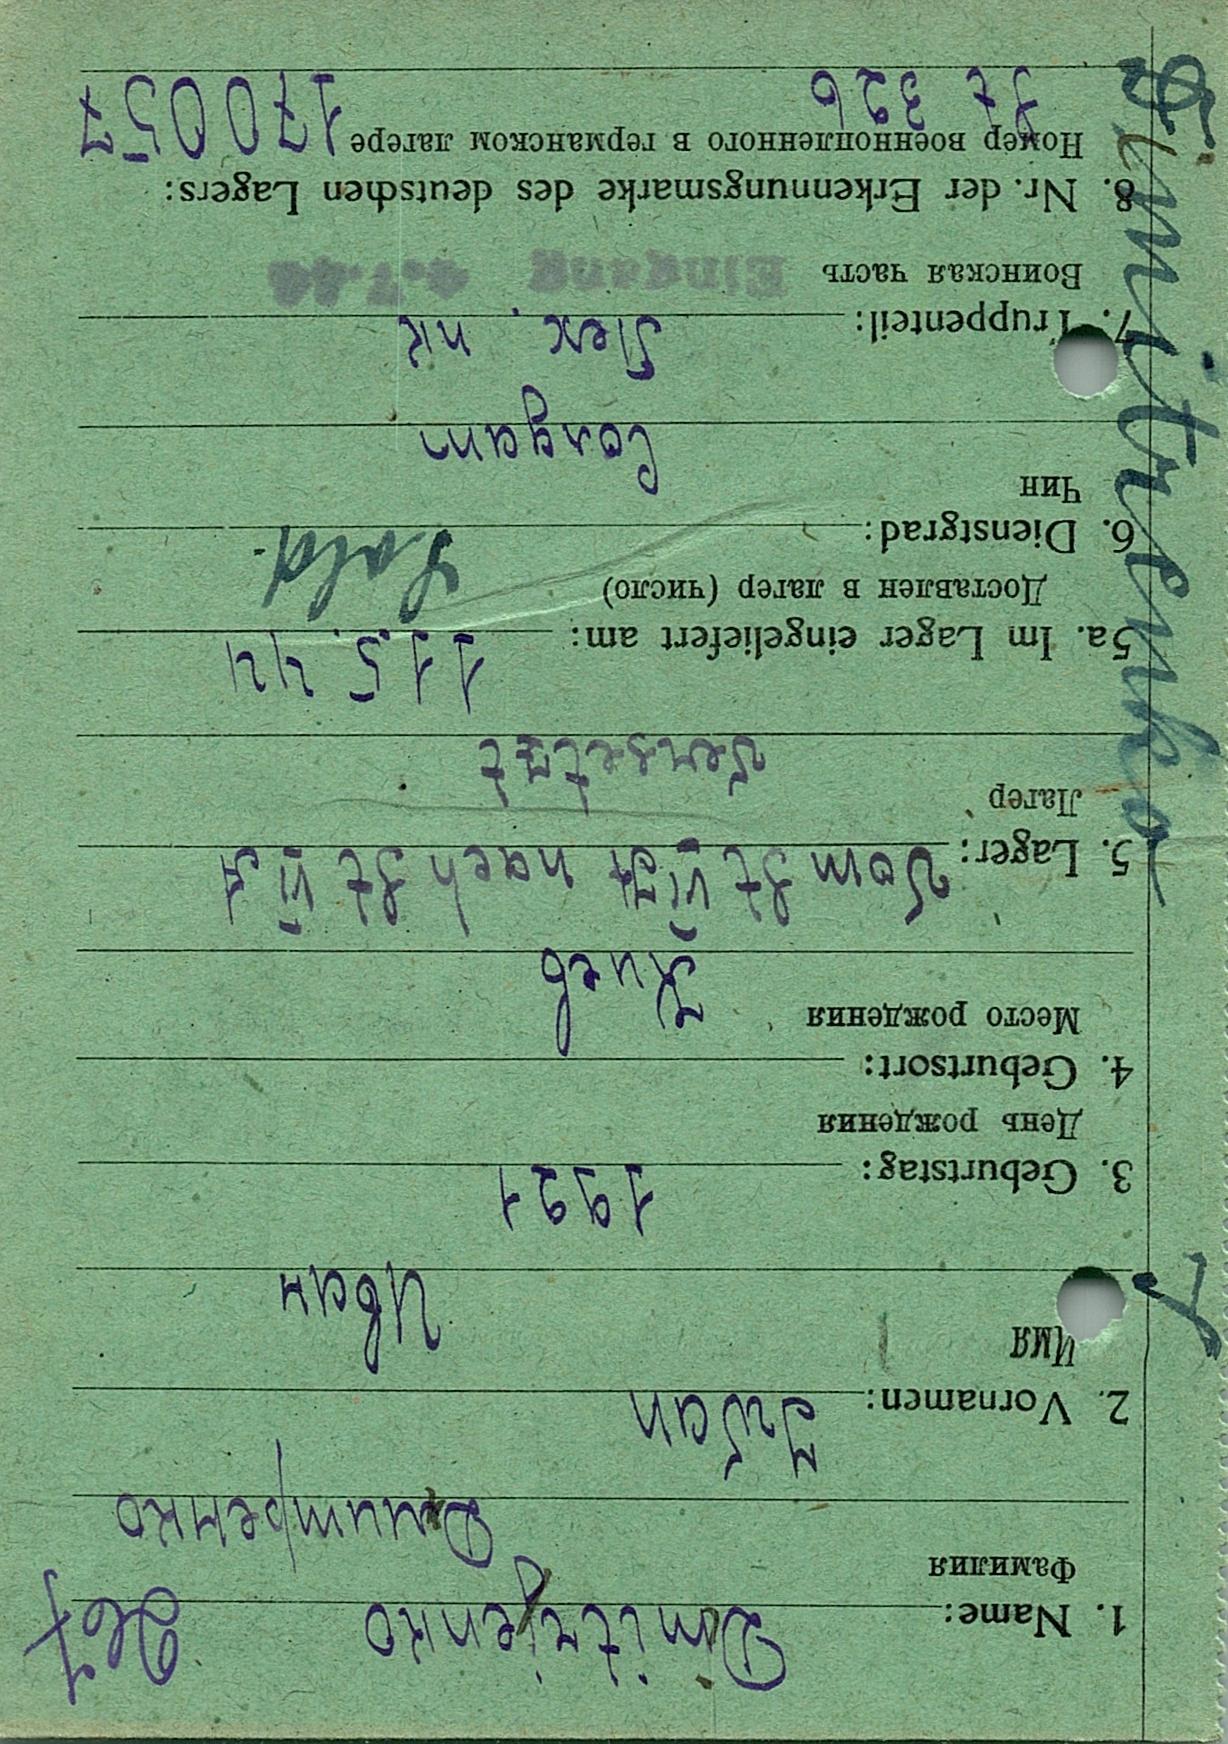 Dimitrenko
1. Name: Dmitrijenko
Фамилия
Дмитренко
2. Vornamen: Iwan
Имя
Иван
3. Geburtstag: 1921
День рождения
4. Geburtsort:
Место рождения Киев
5. Lager: Vom St VI A nach St VI A
Лагер versetzt
5a. Im Lager eingeliefert am: 11.5.44
Доставлен в лагер (число)
6. Dienstgrad: Sold.
Чин Солдат
7. Truppenteil: Пех. пк
Воинская часть Eingang
8. Nr. der Erkennungsmarke des deutschen Lagers:
Номер военнопленного в германском лагере 170057
St 326